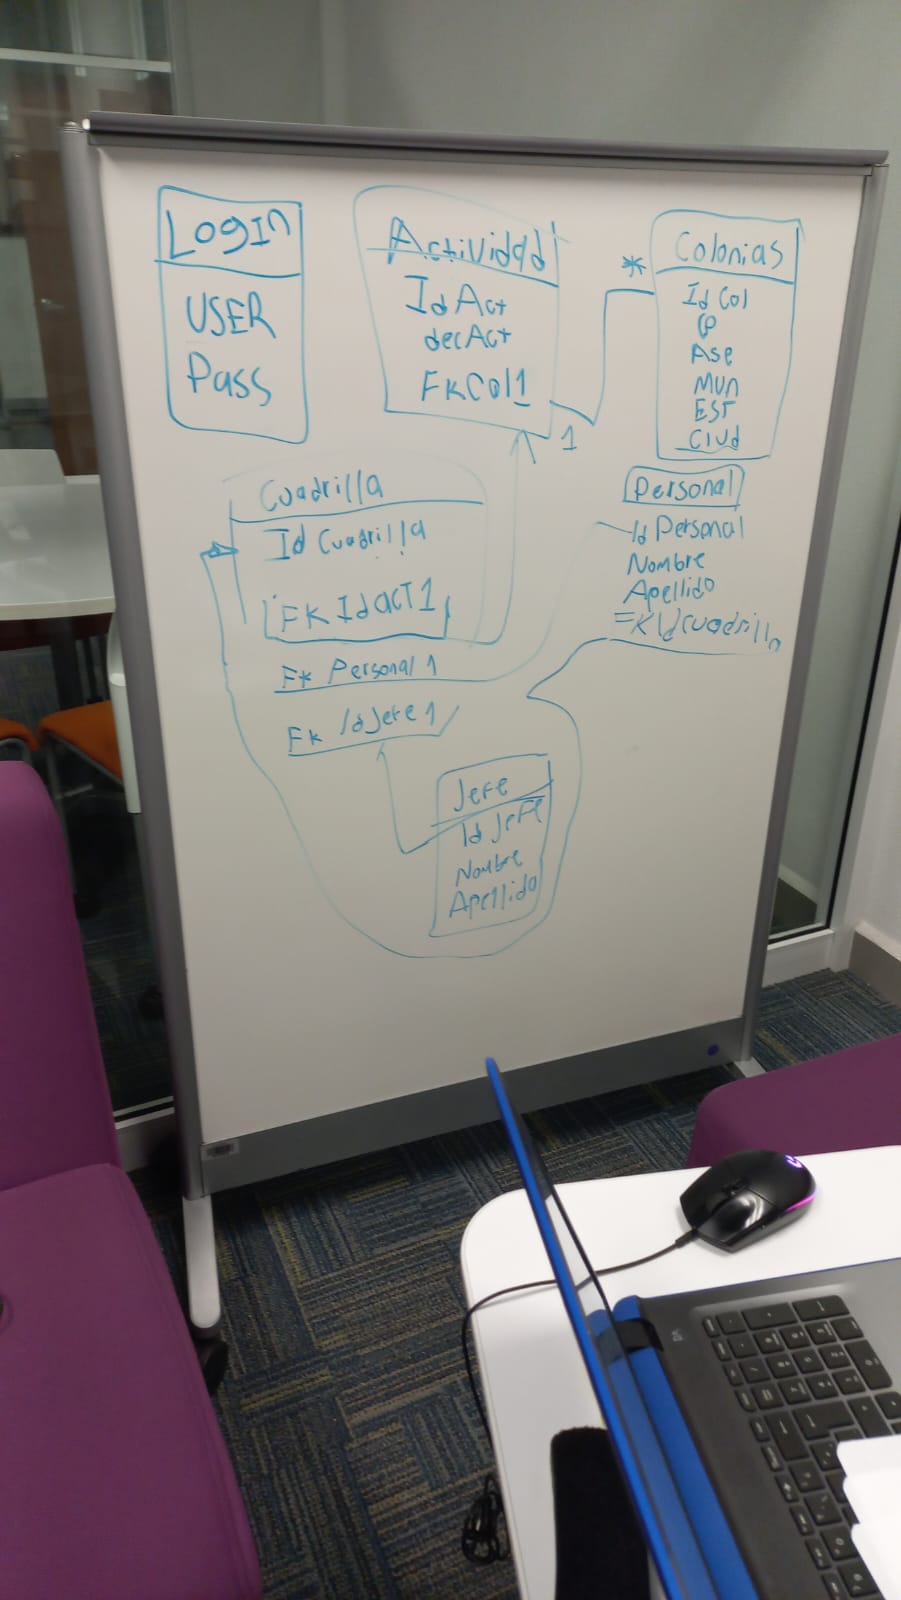 LogIn
USER
Pass
Actividad
IdAct
decAct
FKCol1
1
*
Colonias
Id Col
CP
Ase
Mun
EST
Ciud
Cuadrilla
Id Cuadrilla
FK IdacT1
FK Personal 1
FK IdJefe 1
Personal
Id Personal
Nombre
Apellido
FKIdcuadrilla
Jefe
Id Jefe
Nombre
Apellido